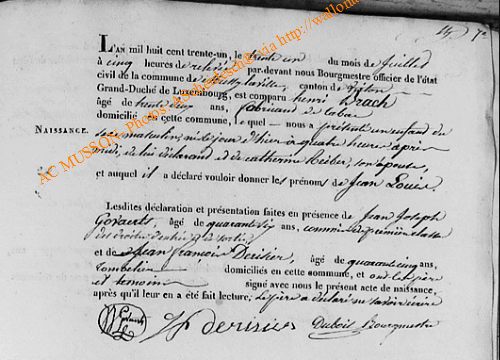 L'AN mil huit cent trente-un, le trente un du mois de juillet
à cinq heures de relevée par-devant nous Bourgmestre officier de l'état
civil de la commune de canton de
Grand-Duché de Luxembourg, est comparu henri Drach
âgé de trente cinq ans, fabricant de tabac
domicilié en cette commune, le quel nous a présenté un enfant du
Naissance.
sexe masculin, né le jour d'hier à quatre heures après
midi, de lui déclarant et de catherine Reiber, son épouse
et auquel il a déclaré vouloir donner les prénoms de Jean Louis.
Lesdites déclaration et présentation faites en présence de Jean Joseph
Govaerts, âgé de quarante six ans, commis de première classe
des droits d'entrée et de sortie
et de Jean francois Derisier, âgé de quarante cinq ans,
domiciliés en cette commune, et ont les père
et temoins signé avec nous le présent acte de naissance,
après qu'il leur en a été fait lecture, le père a déclaré ne savoir écrire
Derisier Dubois Bourgmestre
AC MUSSON- Photos Asscherickx- via http://wallonia